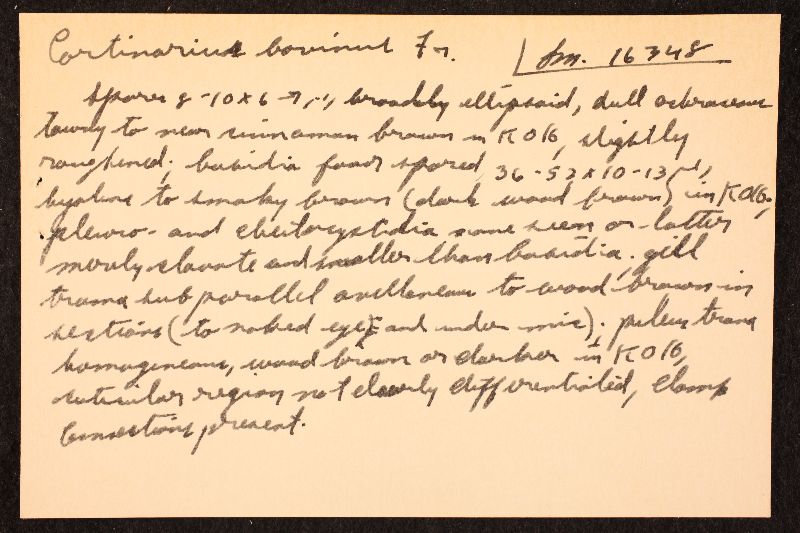 Cortinarius bovinus Fr. Sm. 16348
Spores 8-10 x 6-7 µ, broadly ellipsoid, dull ochraceous
tawny to near cinnamon brown in KOH, slightly
roughened; basidia four spored, 36-52 x 10-13 µ,
hyaline to smoky brown (dark wood brown) in KOH,
pleuro- and cheilocystidia none seen or latter
merely clavate and smaller than basidia. gill
trama subparallel avellaneous to wood brown in
sections (to naked eye and under mic). pileus trama
homogeneous, wood brown or darker in KOH,
cuticular region not clearly differentiated, clamp
connections present.